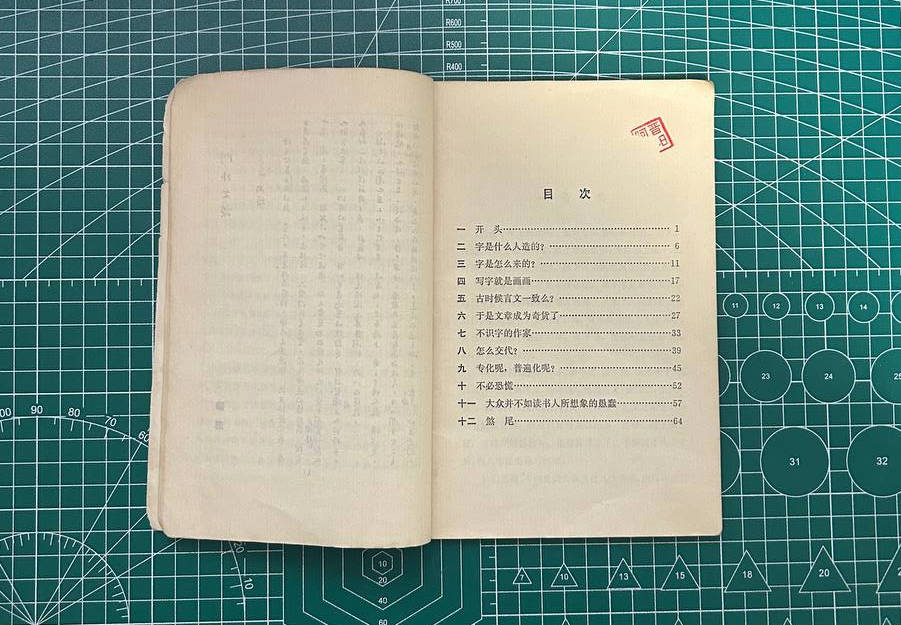 目 次
一 开 头 1
二 字是什么人造的？ 6
三 字是怎么来的？ 11
四 写字就是画画 17
五 古时候言文一致么？ 22
六 于是文章成为奇货了 27
七 不识字的作家 33
八 怎么交代？ 39
九 专化呢，普遍化呢？ 45
十 不必恐慌 52
十一 大众并不如读书人所想象的愚蠢 57
十二 煞 尾 64
R600
R500
R400
11
12
13
14
23
24
25
31
32
90
80
70
60
20
10
10
20
40
60
7
10
13
15
18
20